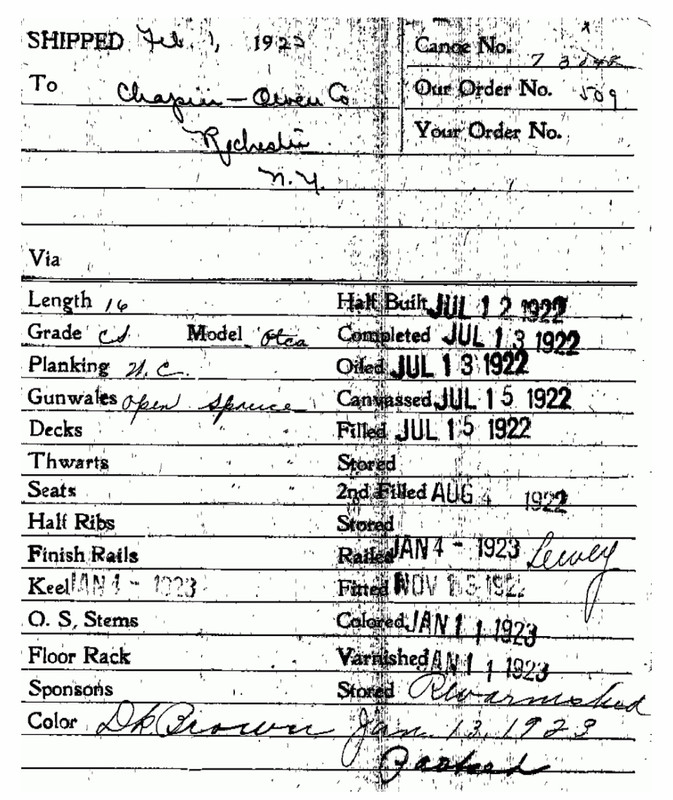 SHIPPED Feb. 1, 1923
Canoe No.
To Chapin-Owen Co
Our Order No. 509
Rochester
Your Order No.
N.Y.
Via
Length 16 Half Built JUL 12 1922
Grade CS Model Otca Completed JUL 13 1922
Planking W.C. Oiled JUL 13 1922
Gunwales open spruce Canvassed JUL 15 1922
Decks " " Filled JUL 15 1922
Thwarts " " Stored
Seats " " 2nd Filled AUG 4 1922
Half Ribs Stored
Finish Rails Railed JAN 4 - 1923 Lewey
Keel JAN 4 - 1923 Fitted NOV 15 192
O. S. Stems Colored JAN 11 1923
Floor Rack Varnished JAN 11 1923
Sponsons Stored Revarnished
Color Dk Brown Jan. 13, 1923